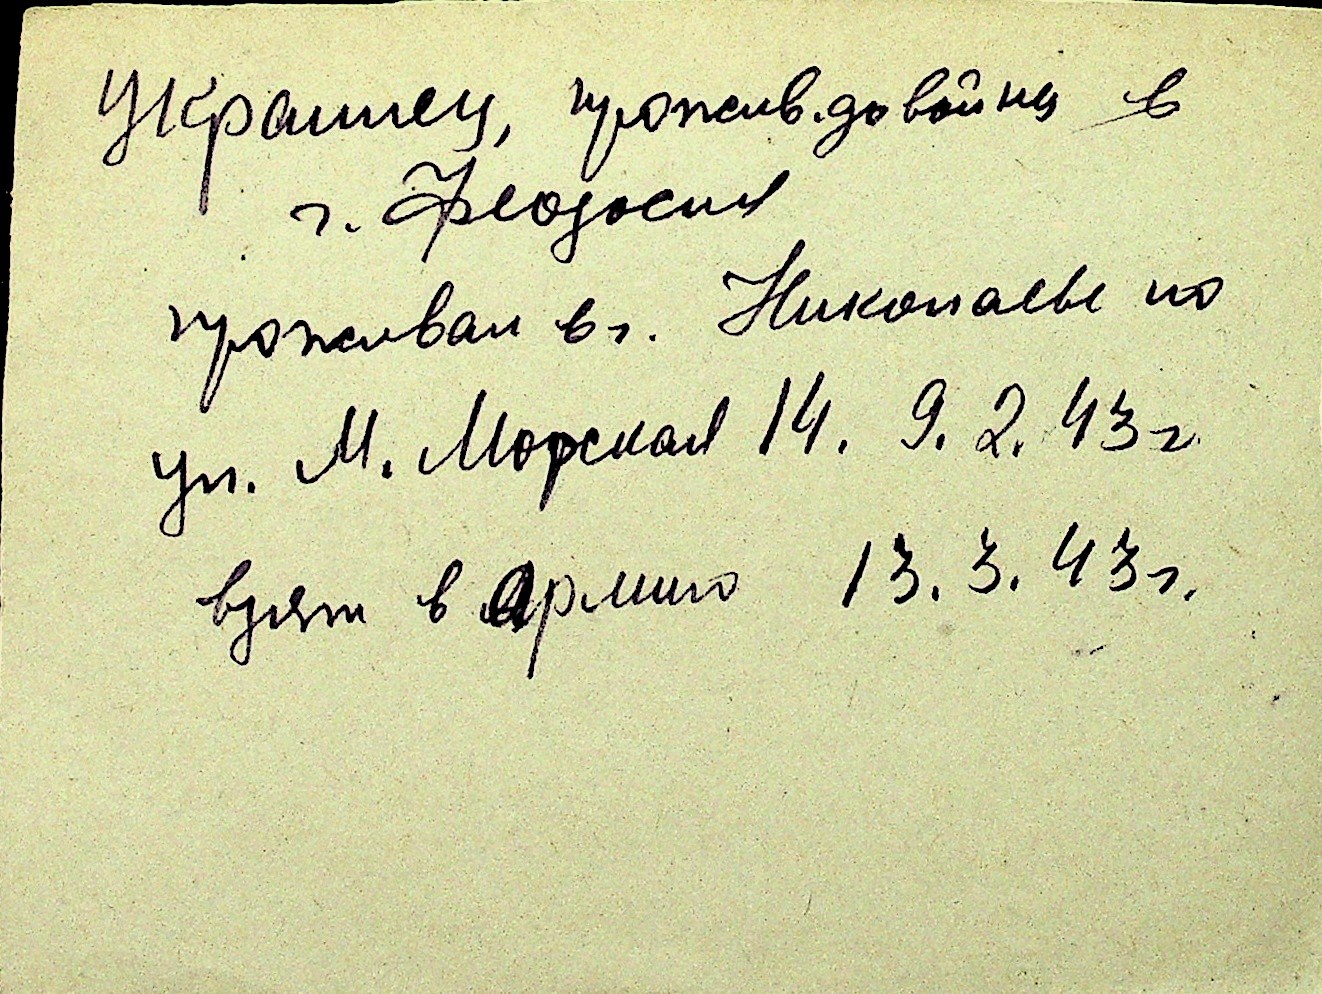 Украинец, прожив. до войны в
г. Феодосия
проживал в г. Николаеве по
ул. М. Морская 14. 9. 2. 43 г.
взят в армию 13. 3. 43 г.